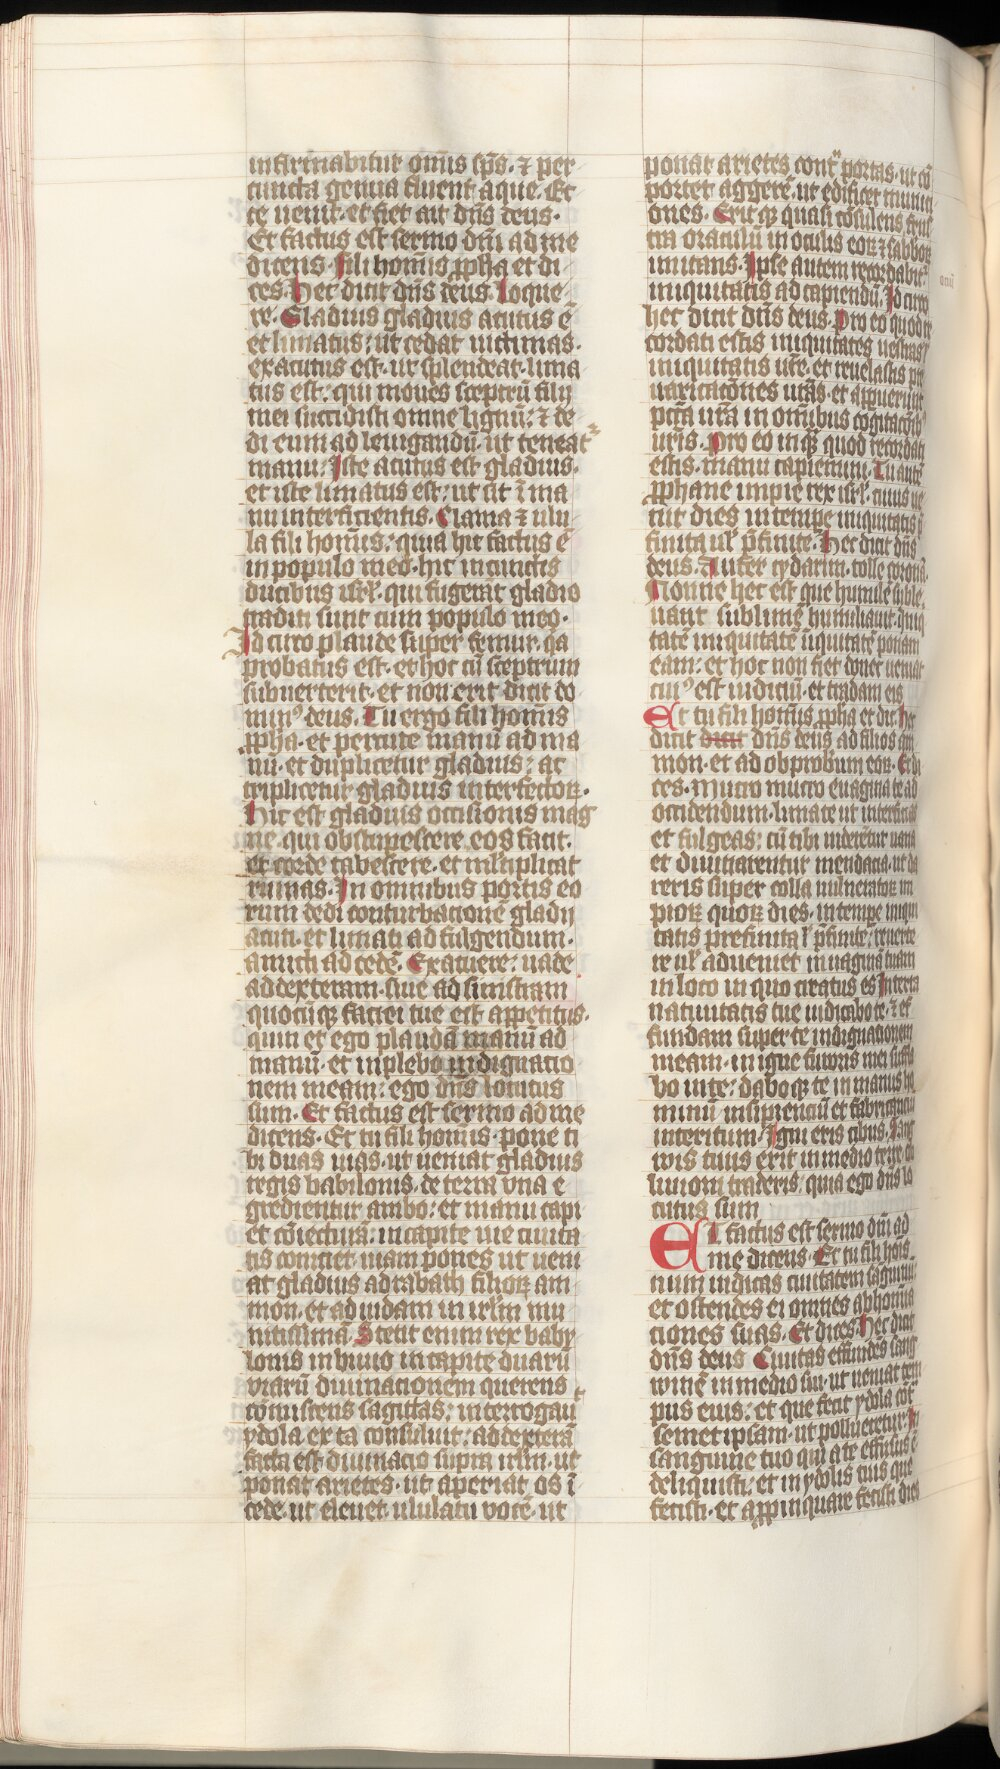 infirmabitur om̅is sp̅s · ⁊ per
cuncta genua fluent aque · Et
te uenit · et fiet ait dn̅s deus ·
Et factus est sermo dn̅i ad me
dicens · Fili hom̅is ꝓph̅a et di
ces · Hec dicit dn̅s deus · loque
re · Gladius gladius acutus e̅
et limatus : ut cedat uictimas ·
exacutus est · ut splendeat · lima
tus est : qui moues sceptru̅ filij
mei succidisti omne lignu̅ : ⁊ de
di eum ad leuigandu̅ · ut teneat᷑
manu : Iste acutus est gladius ·
et iste limatus est : ut sit i̅ ma
nu interficientis · Clama ⁊ ulu
la fili hom̅is : quia hic factus e̅
in populo meo · hic in cunctis
ducibus isrl̅ · qui fugerat gladio
traditi sunt cum populo meo ·
Id circo plaude super femur · q̅a
probatus est · et hoc cu̅ sceptrum
subuerterit · et non erit dicit do
minꝰ deus · Tu ergo fili hom̅is
ꝓph̅a · et percute manu̅ ad ma
nu̅ · et duplicetur gladius : ac
triplicetur gladius interfectoꝝ ·
Hic est gladius occisionis mag
ne · qui obstupescere eos facit ·
et corde tabescere · et ml̅tiplicat
ruinas · In omnibus portis eo
rum dedi conturbacione̅ gladij
acuti · et limati ad fulgendum ·
amicti ad cede̅ · Exacuere : uade
ad dexteram · siue ad sinistram
quocu̅qꝫ faciei tue est appetitus ·
quin et ego plauda̅ manu̅ ad
manu̅ · et inplebo indignatio
nem meam : ego dn̅s locutus
sum · Et factus est sermo ad me
dicens · Et tu fili homi̅s · pone ti
bi duas uias · ut ueniat gladius
regis babilonis · de terra vna e
gredientur ambo : et manu capi
et co̅iectura̅ : in capite uie ciuita
tis coniciet · niam pones ut ueni
at gladius ad rabath filioꝝ am
mon · et ad iudam in irl̅m mu
nitissima̅ · Stetit enim rex baby
lonis in biuio in capite duaru̅
viaru̅ diuinacionem querens
co̅miscens sagittas : interrogau
ydola exta consuluit : ad dextera̅
facta est diuinacio supra irl̅m · ut
ponat arietes · ut aperiat os i̅
cede · ut eleuet ululatu voce̅ · ut
ponat arietes cont᷑ portas · ut co̅
portet aggere̅ · ut edificet muniti
ones · Erit qꝫ quasi co̅sulens frus
tra oraculu̅ in oculis eoꝝ ⁊ sabboꝝ
imitans · Ipse autem recordabit᷑
iniquitatis ad capiendu̅ · Id circo
hec dicit dn̅s deus · Pro eo quod re
cordati estis iniquitates uestras
iniquitatis ur̅e · et reuelastis pre
uaricaco̅nes ur̅as · et apparuerunt
pctā ur̅a in om̅ibus cogitaco̅ibꝰ
ur̅is · Pro eo inqꝫ quod recordati
estis · manu capiemini · Tu aute̅
ꝓphane impie rex isrl̅ · cuius ue
nit dies in tempe̅ iniquitatis p̅
finita ul̅ p̅finite · Hec dicit dn̅s
deus · Aufer cydarim · tolle corona̅ ·
Nonne hec est que humile̅ suble
uauit · sublime̅ humiliauit · iniq
tate̅ iniquitate̅ iniquitate̅ ponam
eam : et hoc non fiet donec ueniat
cuiꝰ est iudiciu̅ · et tradam eis
Et tu fili hom̅is ꝓpha et dic hec
dicit dicit dn̅s deus ad filios am
mon · et ad obprobrium eoꝝ · Et di
ces · Mucro mucro euagina te ad
occidendum · limate ut interficias
et fulgeas : cu̅ tibi uidere̅tur uana
et diuinarentur mendacia · ut da
reris super colla uulneratoꝝ im
pioꝝ quoꝝ dies · in tempe̅ iniqui
tatis prefinita ł p̅finite : reuerte
re ul̅ adueniet in uagina̅ tuam
in loco in quo creatus es In terra
natiuitatis tue iudicabo te · ⁊ ef
fundam super te indignationem
meam · in igne furoris mei suffla
bo in te : dabo qꝫ te in manus ho
minu̅ insipienciu̅ et fabricanciu̅
interitum · Igni eris cibus · Sang
wis tuus erit in medio terre · ob
liuioni traderis : quia ego dn̅s lo
cutus sum
ET factus est sermo dn̅i ad
me dicens · Et tu fili ho̅is
num iudicas ciuitatem sagwinu̅ ·
et ostendes ei omnes abhomīa
ciones suas · Et dices · Hec dicit
dn̅s deus Ciuitas effunde̅s sang
wine̅ in medio sui · ut ueniat tem
pus eius : et que fecit ydola co̅t᷑
semet ipsam · ut pollueretur · In
sanguine tuo qui a te effusus e̅
deliquisti : et in ydolis tuis que
fecisti · et appinquare fecisti dies